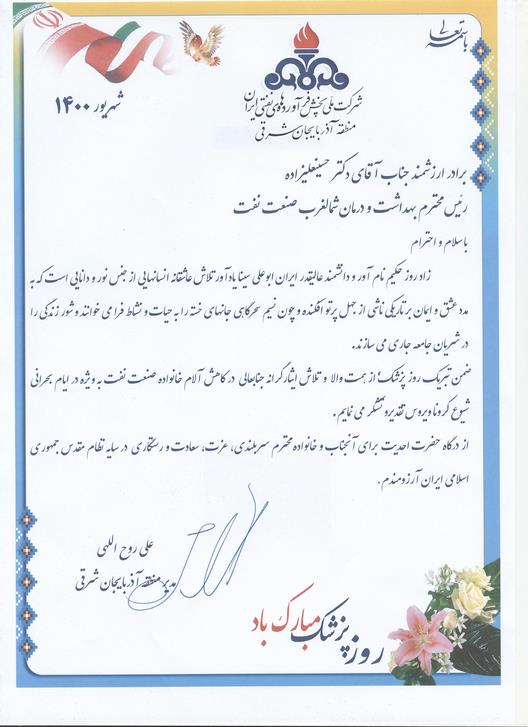 باسمه تعالی
شرکت ملی پخش فرآورده‌های نفتی ایران
منطقه آذربایجان شرقی
شهریور ۱۴۰۰
برادر ارزشمند جناب آقای دکتر حسینعلیزاده
رئیس محترم بهداشت و درمان شمالغرب صنعت نفت
با سلام و احترام
زاد روز حکیم نام آور و دانشمند عالیقدر ایران ابوعلی سینا یادآور تلاش عاشقانه انسانهایی از جنس نور و دانایی است که به
مدد عشق و ایمان بر تاریکی ناشی از جهل پرتو افکنده و چون نسیم سحرگاهی جانهای خسته را به حیات و نشاط فرا می خوانند و شور زندگی را
در شریان جامعه جاری می سازند.
ضمن تبریک روز پزشک؛ از همت والا و تلاش ایثارگرانه جنابعالی در کاهش آلام خانواده صنعت نفت به ویژه در ایام بحرانی
شیوع کرونا ویروس تقدیر و تشکر می نمایم.
از درگاه حضرت احدیت برای آنجناب و خانواده محترم سربلندی، عزت، سعادت و رستگاری در سایه نظام مقدس جمهوری
اسلامی ایران آرزومندم.
علی روح اللهی
مدیر منطقه آذربایجان شرقی
روز پزشک مبارک باد